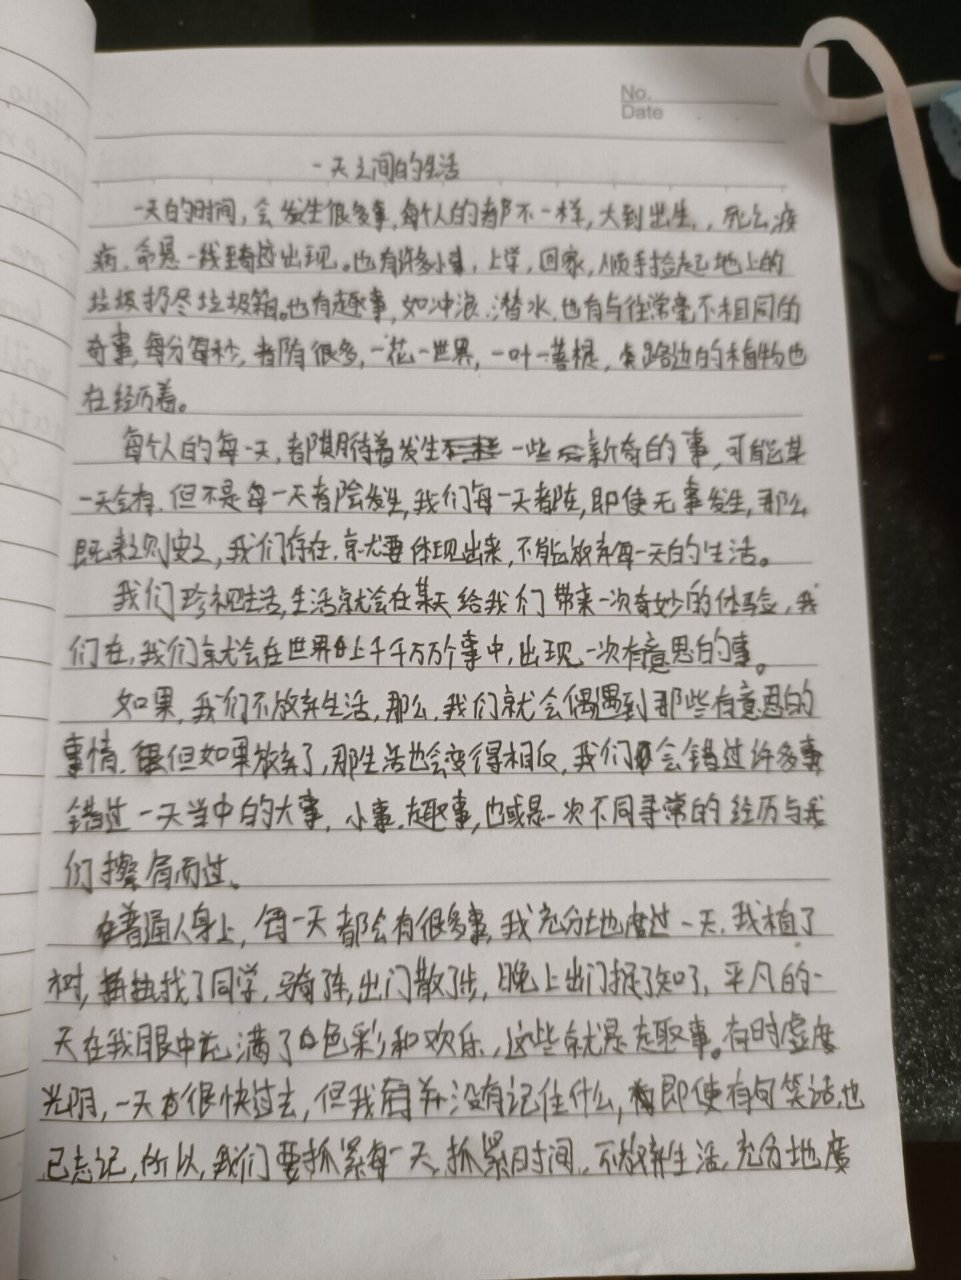 No.
Date
一天之间的生活
一天的时间，会发生很多事，每个人的都不一样，大到出生，死亡，疾
病，命悬一线奇迹出现。也有许多小事，上学，回家，顺手捡起地上的
垃圾扔尽垃圾箱。也有趣事，如冲浪，潜水，也有与往常毫不相同的
奇事，每分每秒，都有很多，一花一世界，一叶一菩提，路边的植物也
在经历着。
每个人的每一天，都期待着发生一些新奇的事，可能某
一天会有，但不是每一天都会发生，我们每一天都在，即使无事发生，那么
既来之则安之，我们存在，就要体现出来，不能放弃每一天的生活。
我们珍视生活，生活就会在某天给我们带来一次奇妙的体验，我
们在，我们就会在世界上千千万万个事中，出现一次有意思的事。
如果，我们不放弃生活，那么，我们就会偶遇到那些有意思的
事情，但如果放弃了，那生活也会变得相反，我们会错过许多事
错过一天当中的大事，小事，趣事，也或是一次不同寻常的经历与我
们擦肩而过。
在普通人身上，每一天都会有很多事，我充分地度过一天，我植了
树，找了同学，骑车，出门散了步，晚上出门捉了知了，平凡的一
天在我眼中充满了色彩和欢乐，这些就是趣事。有时虚度
光阴，一天很快过去，但我并没有记住什么，即使有句笑话，也
已忘记，所以，我们要抓紧每一天，抓紧时间，不放弃生活，充分地度